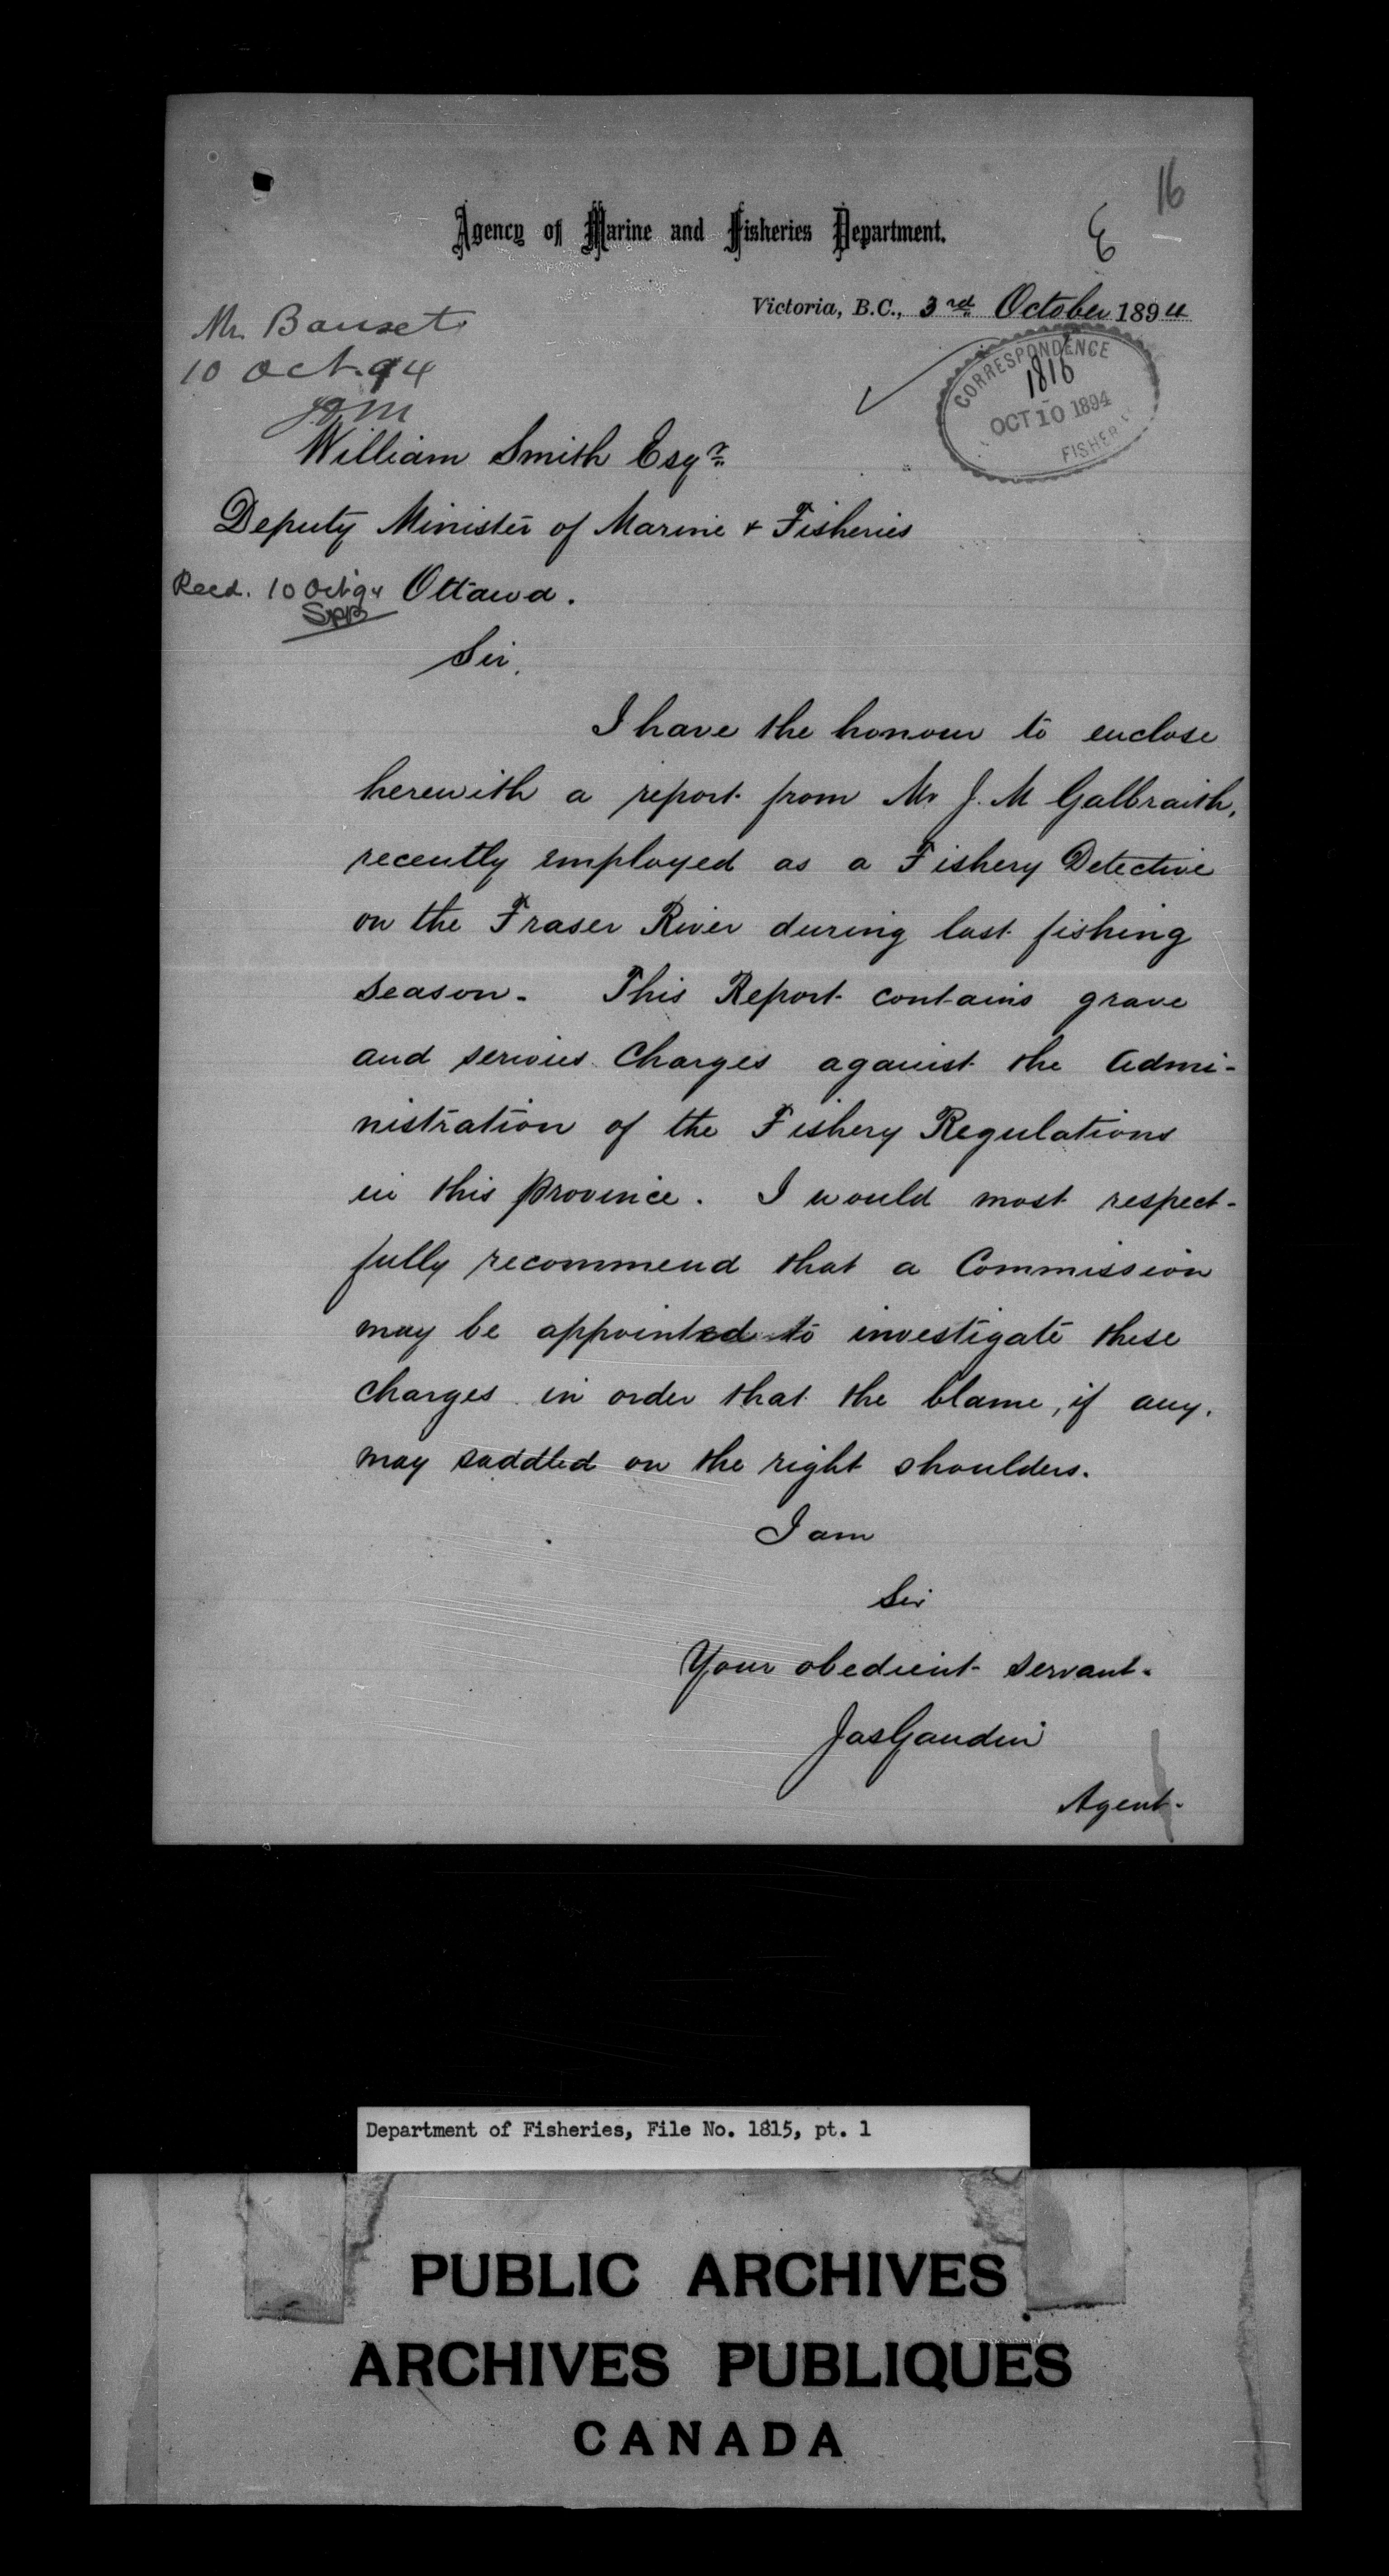 16
E
Agency of Marine and Fisheries Department.
Victoria, B.C., 3rd October 1894
Mr. Bauset
10 Oct. 94
CORRESPONDENCE
1816
OCT 10 1894
FISHER
William Smith Esqr.
Deputy Minister of Marine & Fisheries
Recd. 10 Oct 94
SPB
Ottawa.
Sir,
I have the honour to enclose
herewith a report from Mr J. M Galbraith,
recently employed as a Fishery Detective
on the Fraser River during last fishing
season. This Report contains grave
and serious Charges against the Admi-
nistration of the Fishery Regulations
in this province. I would most respect-
fully recommend that a Commission
may be appointed to investigate these
charges in order that the blame, if any,
may saddled on the right shoulders.
I am
Sir
Your obedient servant.
Jas Gaudin
Agent.
Department of Fisheries, File No. 1815, pt. 1
PUBLIC ARCHIVES
ARCHIVES PUBLIQUES
CANADA